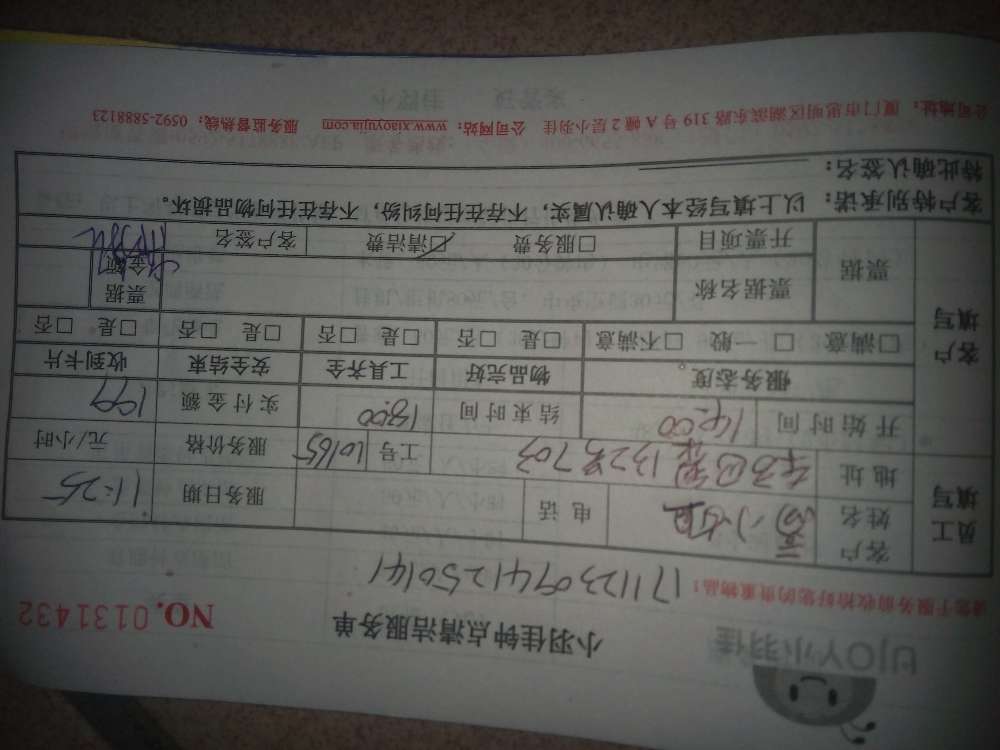 UJOY小羽佳
小羽佳钟点清洁服务单
NO.0131432
请您于服务前收拾好您的贵重物品:
1711230941250141
员工填写
客户姓名
小姐
电话
服务日期
11-25
地址
132号703
工号
10165
服务价格
元/小时
开始时间
14:00
结束时间
18:00
实付金额
199
客户填写
服务态度。
物品完好
工具齐全
安全结束
收到卡片
□满意 □一般 □不满意
□是 □否
□是 □否
□是 □否
□是 □否
票据
票据名称
票据金额
开票项目
□服务费 ☑清洁费
客户签名
客户特别承诺: 以上填写经本人确认属实,不存在任何纠纷,不存在任何物品损坏。
特此确认签名:
公司地址: 厦门市思明区湖滨东路 319 号 A 幢 2 层小羽佳 公司网站: www.xiaoyujia.com 服务监督热线: 0592-5888123